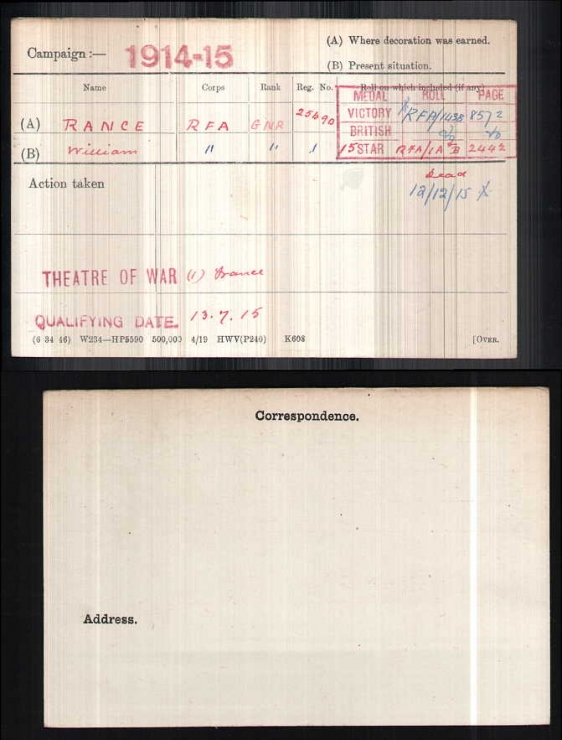 Campaign :— 1914-15
(A) Where decoration was earned.
(B) Present situation.
Name Corps Rank Reg. No. Roll on which included (if any)
MEDAL ROLL PAGE
(A) RANCE RFA GNR 25690
VICTORY RFA/143B 8572
BRITISH do do
(B) William " " "
15 STAR RFA/1A B 2442
Action taken
Dead
12/12/15
THEATRE OF WAR (1) France
QUALIFYING DATE. 13.7.15
(6 34 46) W234—HP5590 500,000 4/19 HWV(P240) K608 [OVER.
Correspondence.
Address.